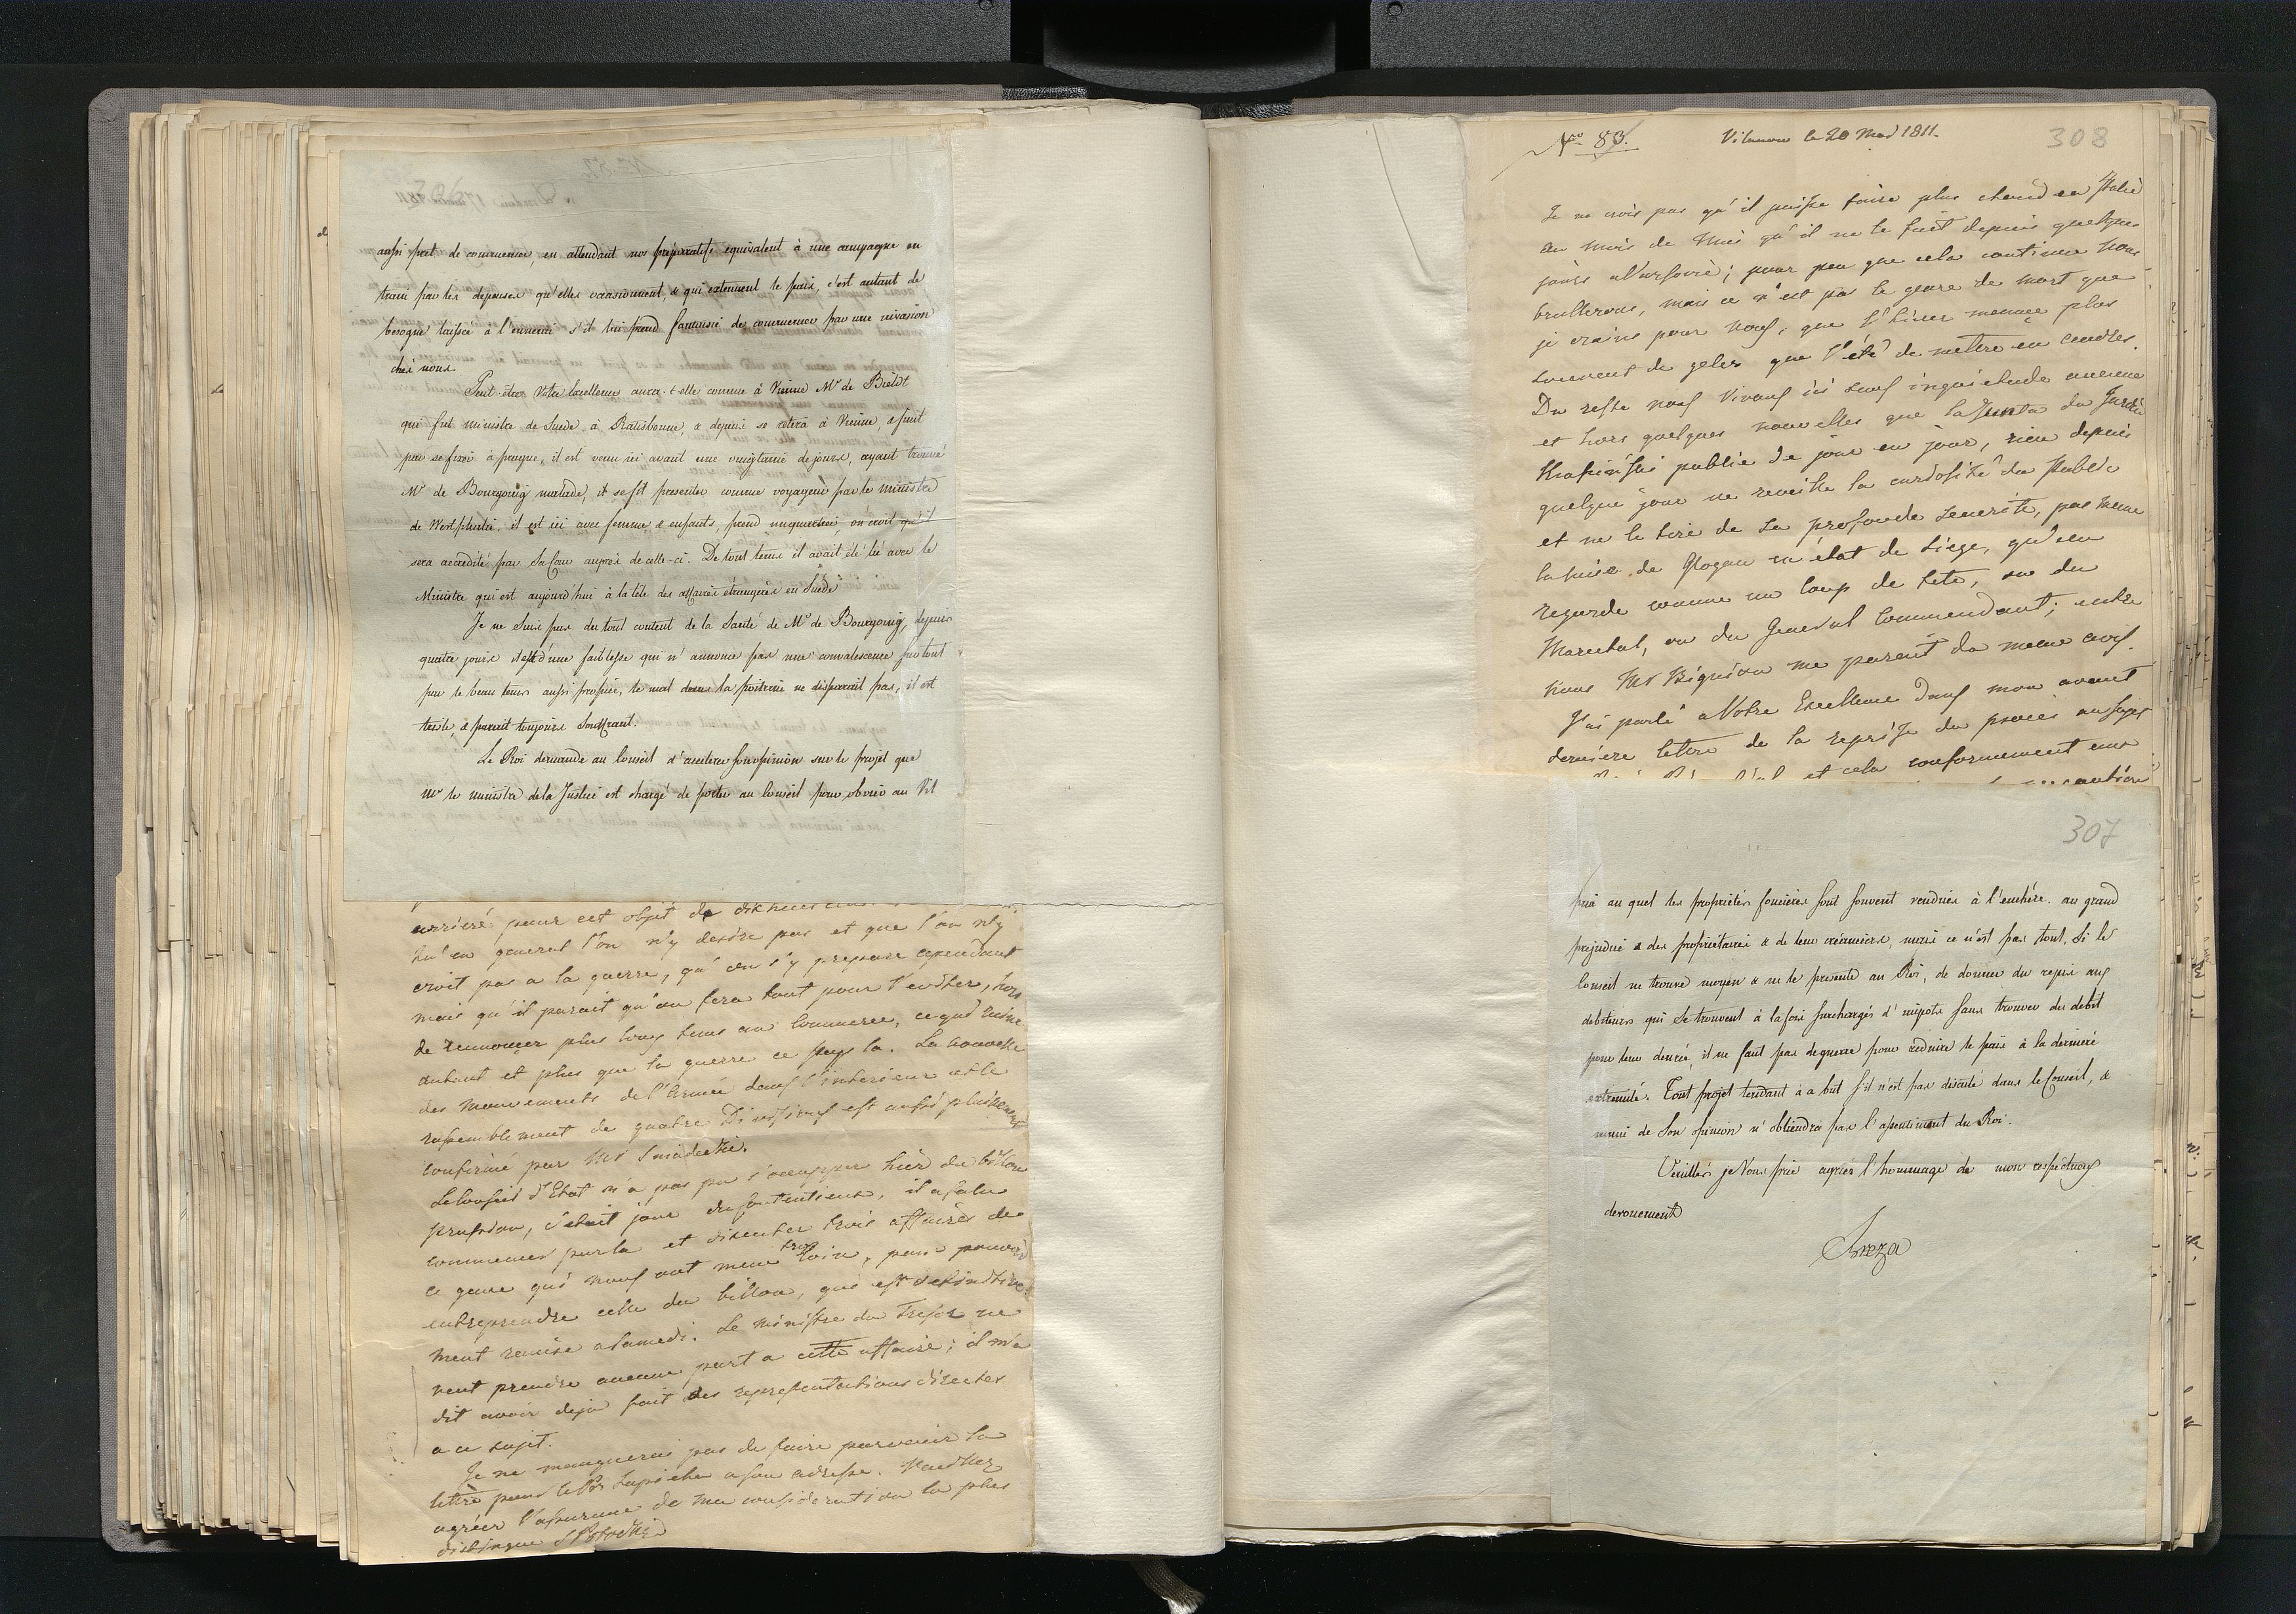 aussi pret de commencer, en attendant nos preparatifs equivalent à une campagne en
train par les depenses qu'elles occasionnent, & qui extenuent le païs, c'est autant de
besogne laissée à l'ennemi s'il lui prend fantaisie de commencer par une invasion
chés nous.
Peut-être Votre Excellence aura-t-elle connue à Vienne Mr de Bildt
qui fut ministre de Suede à Ratisbonne, & depuis se retira à Vienne, & fuit
par se fixer à prague, il est venu ici avant une vingtaine de jours, ayant trouvé
Mr de Bourgoing malade, il se fit presenter comme voyageur par le ministre
de Westphalie, il est ici avec femme & enfants, prend un quartier, on croit qu'il
sera accredité par Sa Cour auprès de celle-ci. De tout tems il avait été lié avec le
Ministre qui est aujourd'hui à la tête des affaires étrangères en Suede
Je ne suis pas du tout content de la Santé de Mr de Bourgoing, depuis
quatre jours il est d'une faiblesse qui n'annonce pas une convalescence surtout
par le beau tems aussi propice, le mal dans la poitrine ne disparait pas, il est
triste, & parait toujours Souffrant.
Le Roi demande au Conseil d'accelerer son opinion sur le projet que
Mr le ministre de la Justice est chargé de porter au Conseil pour obvier au Vil
arrieré pour cet objet de
qu'en general l'on n'y desire pas et que l'on n'y
croit pas a la guerre, qu'on s'y prepare cependant
mais qu'il parait qu'on fera tout pour l'eviter, hors
de renoncer plus long tems au Commerce, ce qui ruine
autant et plus que la guerre ce pays la. La nouvelle
des mouvements de l'Armée dans l'interieur et le
rassemblement de quatre Divisions est aussi pleinement
confirmé par Mr Sniadecki.
Le Conseil d'Etat n'a pas pu s'occupper hier du billon
prussien, c'etait jour du Contentieux, il a falu
commencer par la et discuter trois affaires de
ce genre qui nous ont mené trop loin, pour pouvoir
entreprendre celle du billon, qui est definitive-
ment remise a Samedi. Le Ministre du Tresor ne
veut prendre aucune part a cette affaire; il m'a
dit avoir deja fait des representations directes
a ce sujet.
Je ne manquerai pas de faire parvenir la
lettre pour le Pr Sapieha a son adresse. Veuillez
agréer l'assurance de ma consideration la plus
distinguée SPotocki
No 83.
Vilanow le 20 Mai 1811.
308
Je ne crois pas qu'il puisse faire plus chaud en Italie
au mois de Mai qu'il ne le fait depuis quelques
jours a Varsovie; pour peu que cela continue nous
brullerons, mais ce n'est pas le genre de mort que
je crains pour nous, que l'hiver menace plus
souvent de geler que l'été de mettre en cendres.
Du reste nous Vivons ici sans inquietude aucune
et hors quelques nouvelles que la Junta du Jardin
Krasinski publie de jour en jour, rien depuis
quelque jour ne reveille la curiosité du Public
et ne le tire de sa profonde securité, pas meme
la mise de Glogau en état de Siege, qu'on
regarde comme un coup de tete, ou du
Marechal, ou du General Commendant; entre
nous Mr Bignion me parait du meme avis.
J'ai parlé a Votre Excellence dans mon avant
derniere lettre de la reprise du procès au sujet
et cela conformement aux
307
prix au quel les propriétés foncières sont souvent vendues à l'enchére au grand
prejudice & des proprietaires & de leur créanciers, mais ce n'est pas tout, si le
Conseil ne trouve moyen & ne le presente au Roi, de donner du repis aux
debiteurs qui se trouvent à la fois surchargés d'impots sans trouver du debit
pour leur denrée, il ne faut pas de guerre pour reduire le païs à la derniere
extremité. Tout projet tendant à ce but s'il n'est pas discuté dans le Conseil, &
muni de Son opinion n'obtiendra pas l'assentiment du Roi.
Veuillés je Vous prie agréer l'hommage de mon respectueux
devouement
Breza